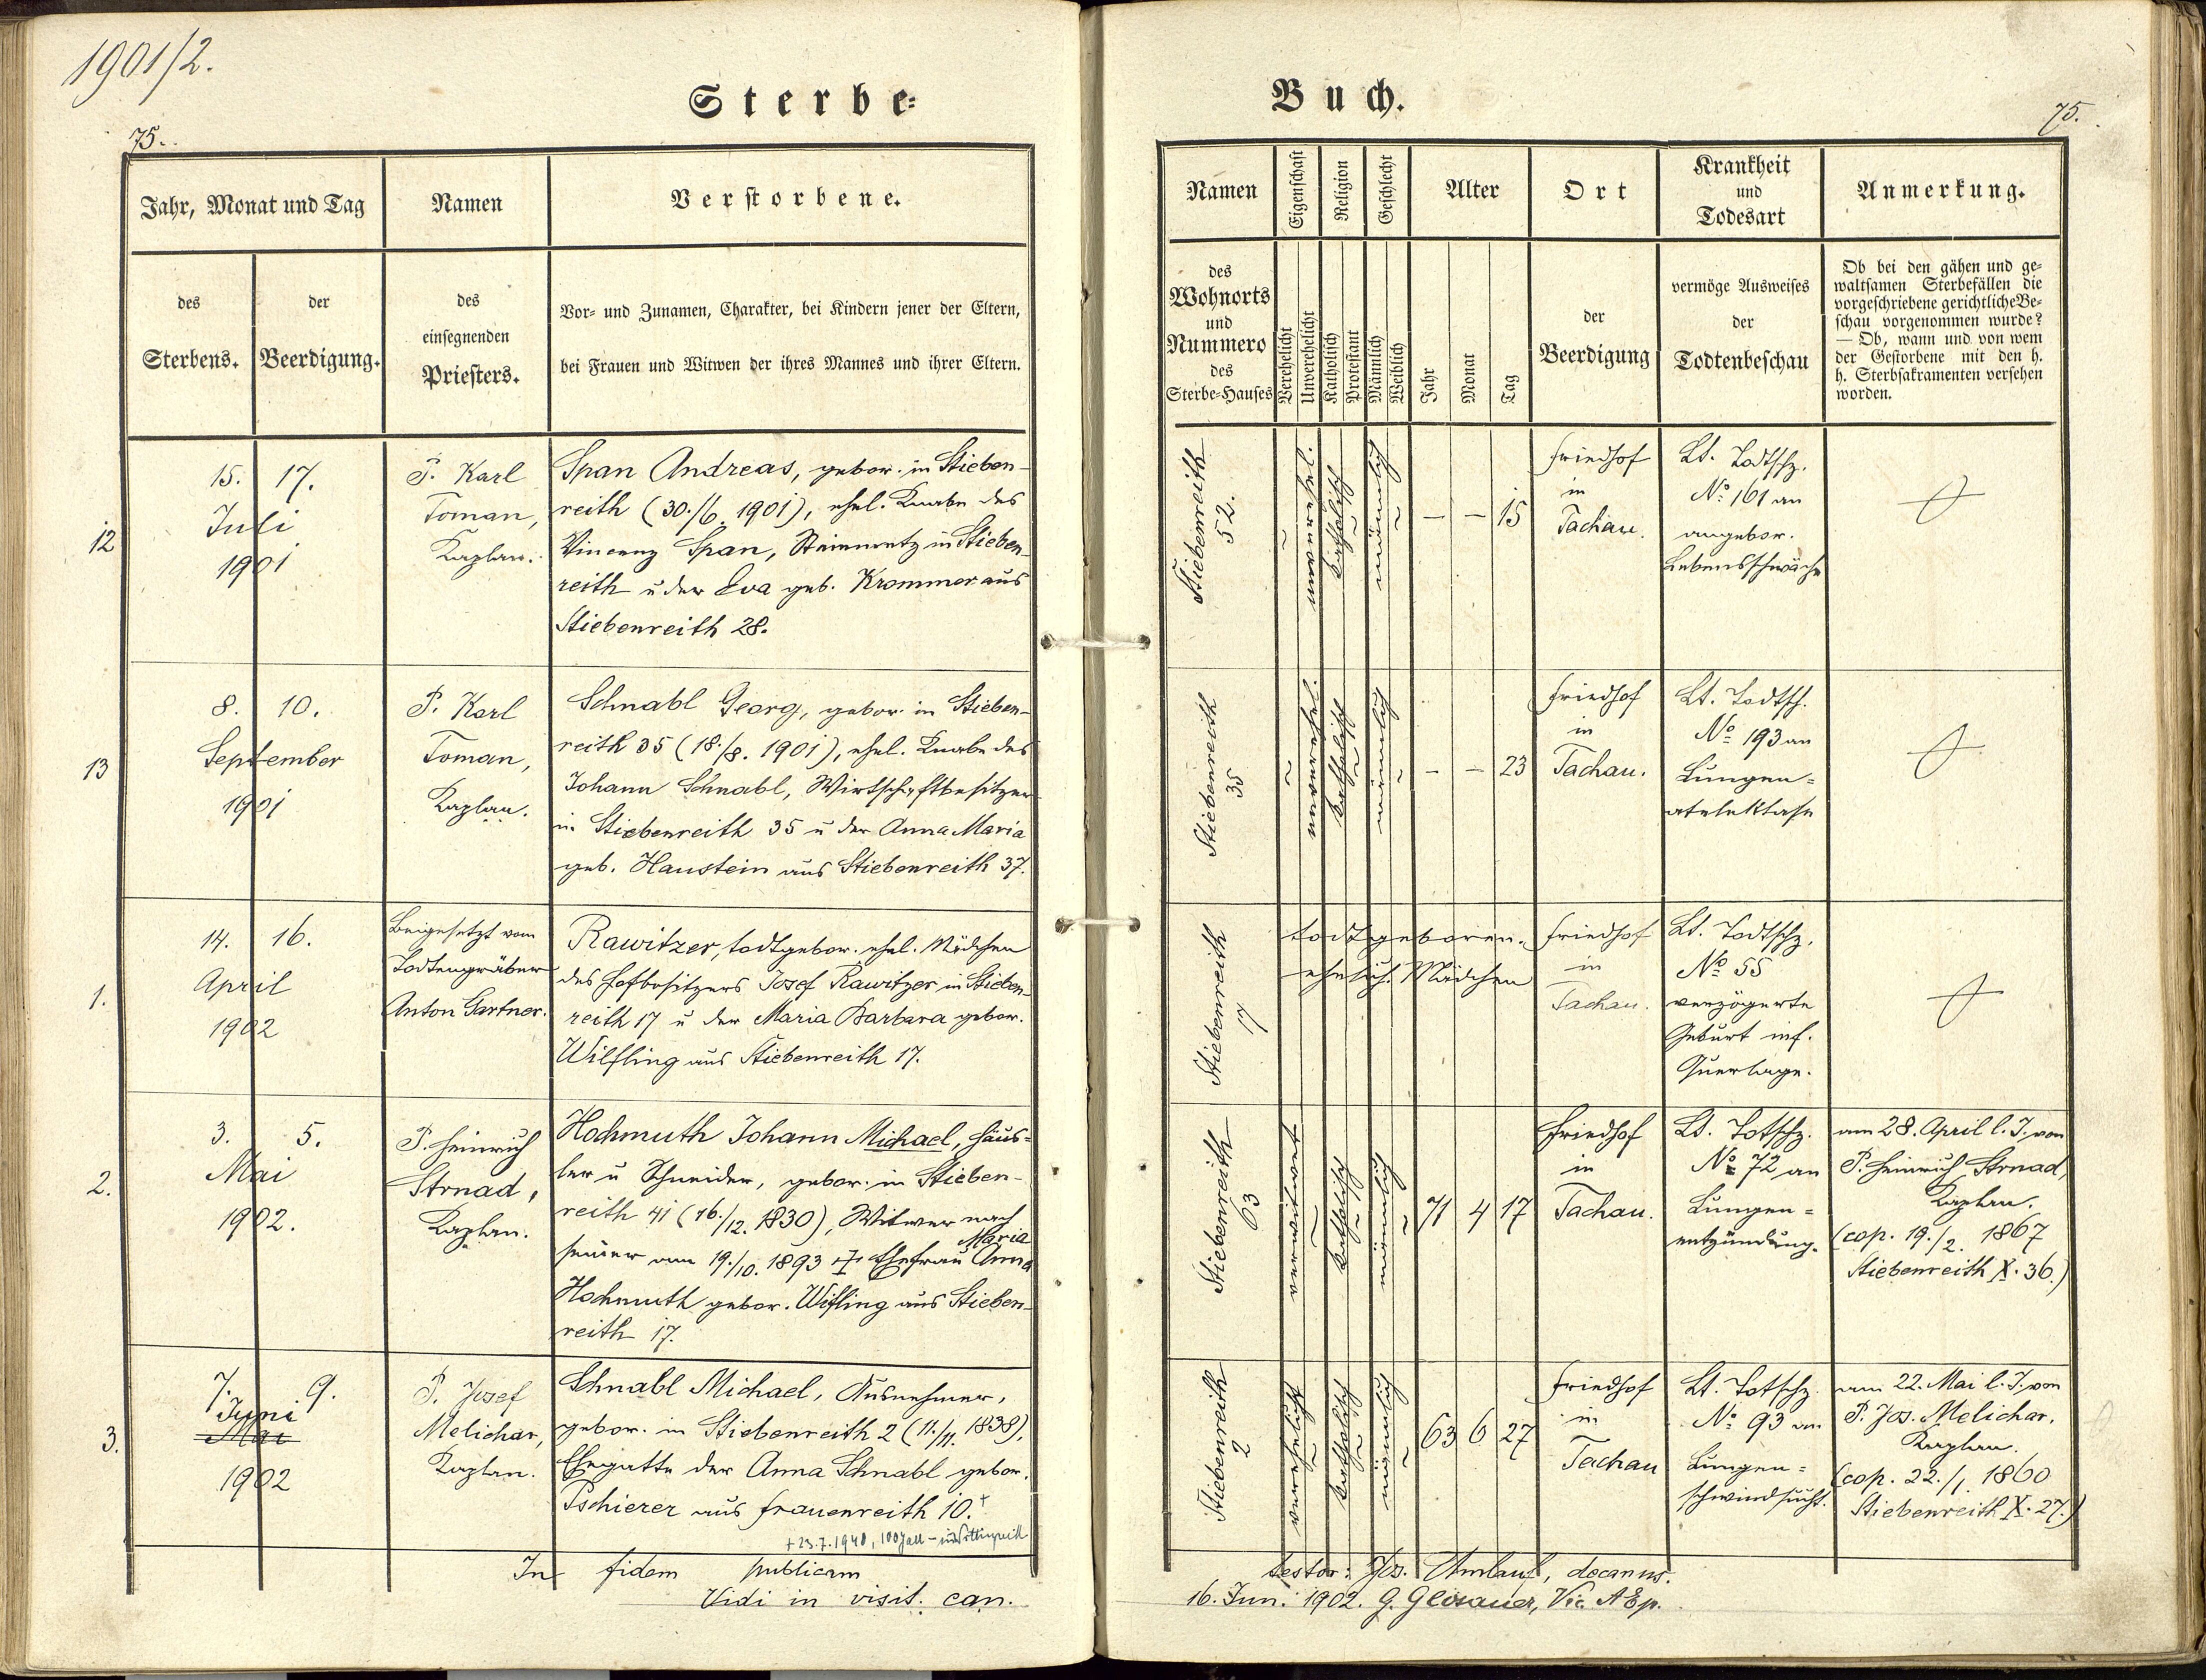 1901/2.
Sterbe=
75.
Jahr, Monat und Tag
Namen
Verstorbene.
des
Sterbens.
der
Beerdigung.
des
einsegnenden
Priesters.
Vor- und Zunamen, Charakter, bei Kindern jener der Eltern,
bei Frauen und Witwen der ihres Mannes und ihrer Eltern.
12
15. 17.
Juli
1901
P. Karl
Toman,
Kaplan.
Span Andreas, gebor. in Stieben-
reith (30./6. 1901), ehel. Knabe des
Vincenz Span, Steinmetz in Stieben-
reith u der Eva geb. Krommer aus
Stiebenreith 28.
13
8. 10.
September
1901
P. Karl
Toman,
Kaplan.
Schnabl Georg, gebor. in Stieben-
reith 35 (18./8. 1901), ehel. Knabe des
Johann Schnabl, Wirtschaftbesitzer
in Stiebenreith 35 u der Anna Maria
geb. Haustein aus Stiebenreith 37.
1.
14. 16.
April
1902
Beigesetzt vom
Todtengräber
Anton Gartner.
Rawitzer, todtgebor. ehel. Mädchen
des Hofbesitzers Josef Rawitzer in Stieben-
reith 17 u der Maria Barbara gebor.
Wilfling aus Stiebenreith 17.
2.
3. 5.
Mai
1902.
P. Heinrich
Strnad,
Kaplan.
Hochmuth Johann Michael, Häus=
ler u Schneider, gebor. in Stieben-
reith 41 (16./12. 1830), Witwer nach
seiner am 19./10. 1893 † Ehefrau Maria Anna
Hochmuth gebor. Wilfling aus Stieben-
reith 17.
3.
7. 9.
Juni
Mai
1902
P. Josef
Melichar,
Kaplan.
Schnabl Michael, Ausnehmer,
gebor. in Stiebenreith 2 (11./11. 1838),
Ehegatte der Anna Schnabl gebor.
Pschierer aus Frauenreith 10.+
+ 23.7.1940, 100 J alt -
In fidem publicam
Vidi in visit. can.
Buch.
75.
Namen
Eigenschaft
Religion
Geschlecht
Alter
Ort
Krankheit
und
Todesart
Anmerkung.
des
Wohnorts
und
Nummero
des
Sterbe-Hauses
Verehelicht
Unverehelicht
Katholisch
Protestant
Männlich
Weiblich
Jahr
Monat
Tag
der
Beerdigung
vermöge Ausweises
der
Todtenbeschau
Ob bei den gähen und ge=
waltsamen Sterbefällen die
vorgeschriebene gerichtliche Be=
schau vorgenommen wurde?
— Ob, wann und von wem
der Gestorbene mit den h.
h. Sterbsakramenten versehen
worden.
Stiebenreith
52.
~ unverehel.
katholisch ~
männlich ~
— — 15
Friedhof
in
Tachau.
Lt. Todtschz.
No 161 an
angebor.
Lebensschwäche
Stiebenreith
35
~ unverehel.
katholisch ~
männlich ~
- - 23
Friedhof
in
Tachau.
Lt. Todtsch.
No 193 an
Lungen=
atelektase
Stiebenreith
17
todtgeboren.
ehelich. Mädchen
Friedhof
in
Tachau.
Lt. Todtschz.
No 55
verzögerte
Geburt inf.
Querlage.
Stiebenreith
63
verwitwet ~
katholisch ~
männlich ~
71 4 17
Friedhof
in
Tachau.
Lt. Totschz.
No 72 an
Lungen=
entzündung.
am 28. April l. J. von
P. Heinrich Strnad,
Kaplan.
(cop. 19./2. 1867
Stiebenreith X. 36.)
Stiebenreith
2
verehelicht ~
katholisch ~
männlich ~
63 6 27
Friedhof
in
Tachau
Lt. Totschz.
No 93 an
Lungen=
schwindsucht.
am 22. Mai l. J. von
P. Jos. Melichar.
Kaplan.
(cop. 22./1. 1860
Stiebenreith X. 27.)
testor: Jos. Umlauf, decanus.
16. Jun. 1902. G. Glosauer, Vic. AEp.